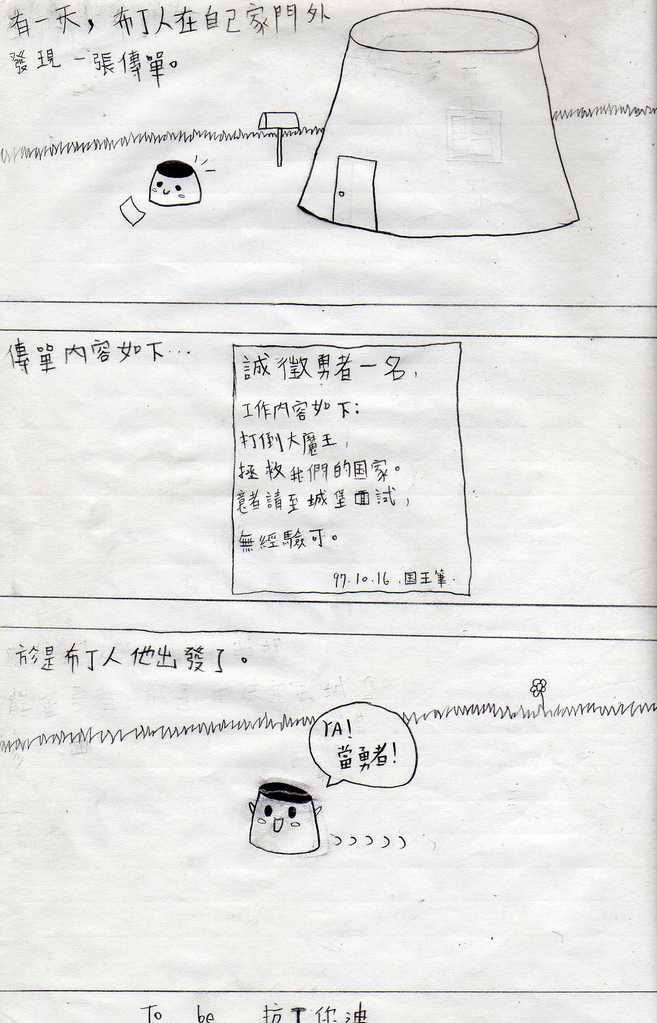 有一天，布丁人在自己家門外
發現一張傳單。
傳單內容如下…
誠徵勇者一名，
工作內容如下：
打倒大魔王，
拯救我們的国家。
意者請至城堡面試，
無經驗可。
97.10.16.国王筆.
於是布丁人他出發了。
YA!
當勇者!
To be 抗丁你油